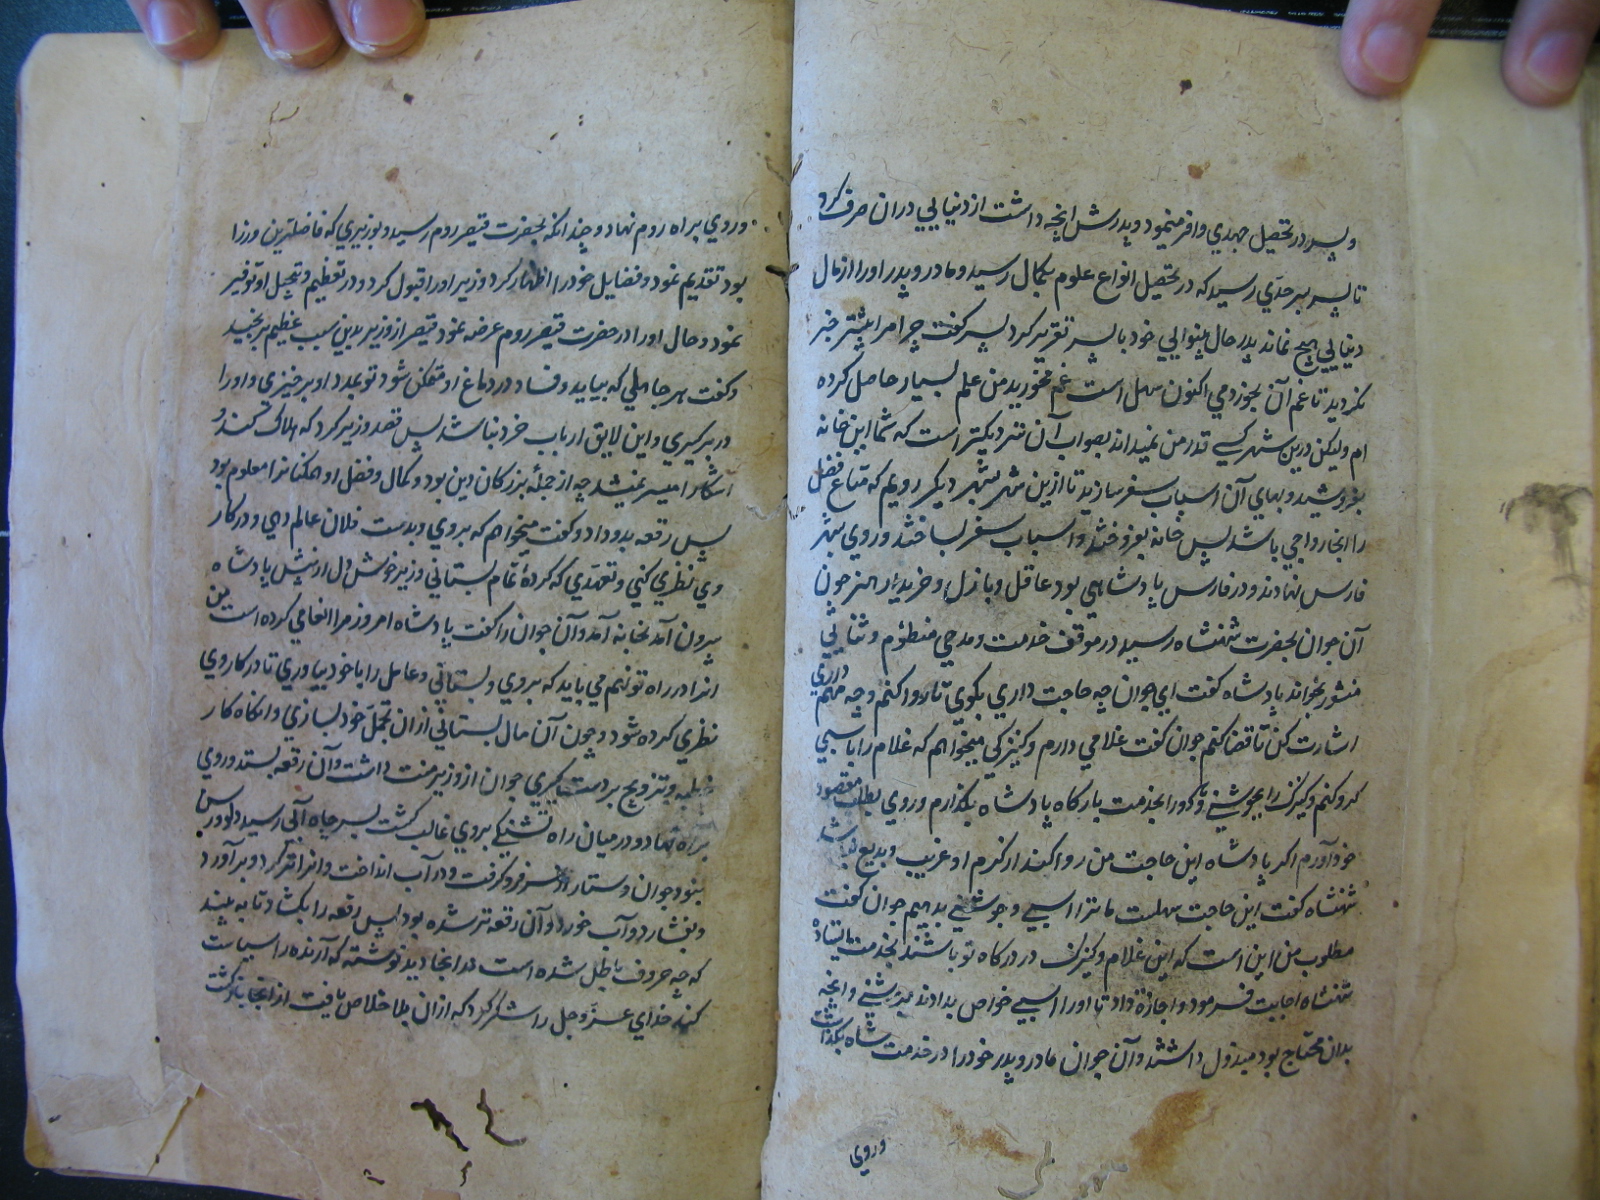 و پسر در تحصیل جهدي وافر مینمود و پدرش انچه داشت از دنیایي دران صرف کرد
تا پسر بر حدي رسید که در تحصیل انواع علوم بکمال رسید و مادر و پدر او را از مال
دنیایي هیچ نماند پدر حال بینوایي خود با پسر تقریر کرد پسر گفت چرا مرا پیشتر خبر
نکردید تا غم آن بخوردمي اکنون سهل است غم مخورید من علم بسیار حاصل کرده
ام ولیکن درین شهر کسي قدر من نمیداند بصواب آن نزدیکتر است که شما این خانه
بفروشید و بهاي آن اسباب سفر سازید تا ازین شهر بشهر دیگر رویم که متاع فضل
را انجا رواجي باشد پس خانه بفروختند و اسباب سفر بساختند و روي بشهر
فارس نهادند و در فارس پادشاهي بود عاقل و باذل و خریدار هنر چون
آن جوان بحضرت شهنشاه رسید در موقف خدمت و مدحي منظوم و ثنایي
منثور بخواند پادشاه گفت اي جوان چه حاجت داري بگوي تا روا کنم و چه مهم داري
اشارت کن تا قضا کنم جوان گفت غلامي دارم و کنیزکي میخواهم که غلام را باسپي
گرو کنم و کنیزک را بجوشني و در خدمت بارگاه پادشاه بگذارم و روي بطلب مقصود
خود آورم اگر پادشاه این حاجت من روا کند از کرم او غریب و بدیع نباشد
شهنشاه گفت این حاجت سهلست ما ترا اسپي و جوشني بدهیم جوان گفت
مطلوب من این است که این غلام و کنیزک در درگاه تو باشند بخدمت ایستاده
شهنشاه اجابت فرمود و اجازة داد تا او را اسپي خواص بدادند و جوشني و انچه
بدان محتاج بود مبذول داشتند و آن جوان مادر و پدر خود را در خدمت شاه بگذاشت
وروي
و روي براه روم نهاد و چندانکه بحضرت قیصر روم رسید و بوزیري که فاضلترین وزرا
بود تقدیم نمود و فضایل خود را اظهار کرد وزیر او را قبول کرد و در تعظیم و تبجیل او توفیر
نمود و حال او را در حضرت قیصر روم عرضه نمود قیصر از وزیر بدین سبب عظیم برنجید
و گفت هر جاهلي که بیاید و فساد در دماغ او متمکن شود تو بمدد او برخیزي و او را
در بر گیري و این لایق ارباب خرد نباشد پس قصد وزیر کرد که هلاک کند و
آشکارا میسر نمیشد چه از جملهٔ بزرگان دین بود و کمال و فضل او همگنانرا معلوم بود
پس رقعه بدو داد و گفت میخواهم که بروي و بدست فلان عامل دهي و در کار
وي نظري کني و تعهدي که کرده تمام بستاني وزیر خوش دل از پیش پادشاه
بیرون آمد بخانه آمد و آن جوان را گفت پادشاه امروز مرا انعامي کرده است من
انرا در راه تو نهم مي باید که بروي و بستاني و عامل را با خود بیاوري تا در کار وي
نظري کرده شود و چون آن مال بستاني از ان تجمل خود بسازي و انگاه کار
خطبه و تزویج بر دست گیري جوان از وزیر منت داشت و آن رقعه بستد و روي
براه نهاد و در میان راه تشنگي بروي غالب گشت بسر چاه آبي رسید دلو و رسن
نبود جوان دستار از سر فرو گرفت و در آب انداخت و انرا تر کرد و بر آورد
و بفشارد و آب خورد و آن رقعه تر شده بود پس رقعه را بکشاد تا به بیند
که چه حروف باطل شده است در انجا دید نوشته که آرنده را سیاست
کنند خداي عز وجل را شکر کرد که از ان بلا خلاص یافت از انجا بازگشت